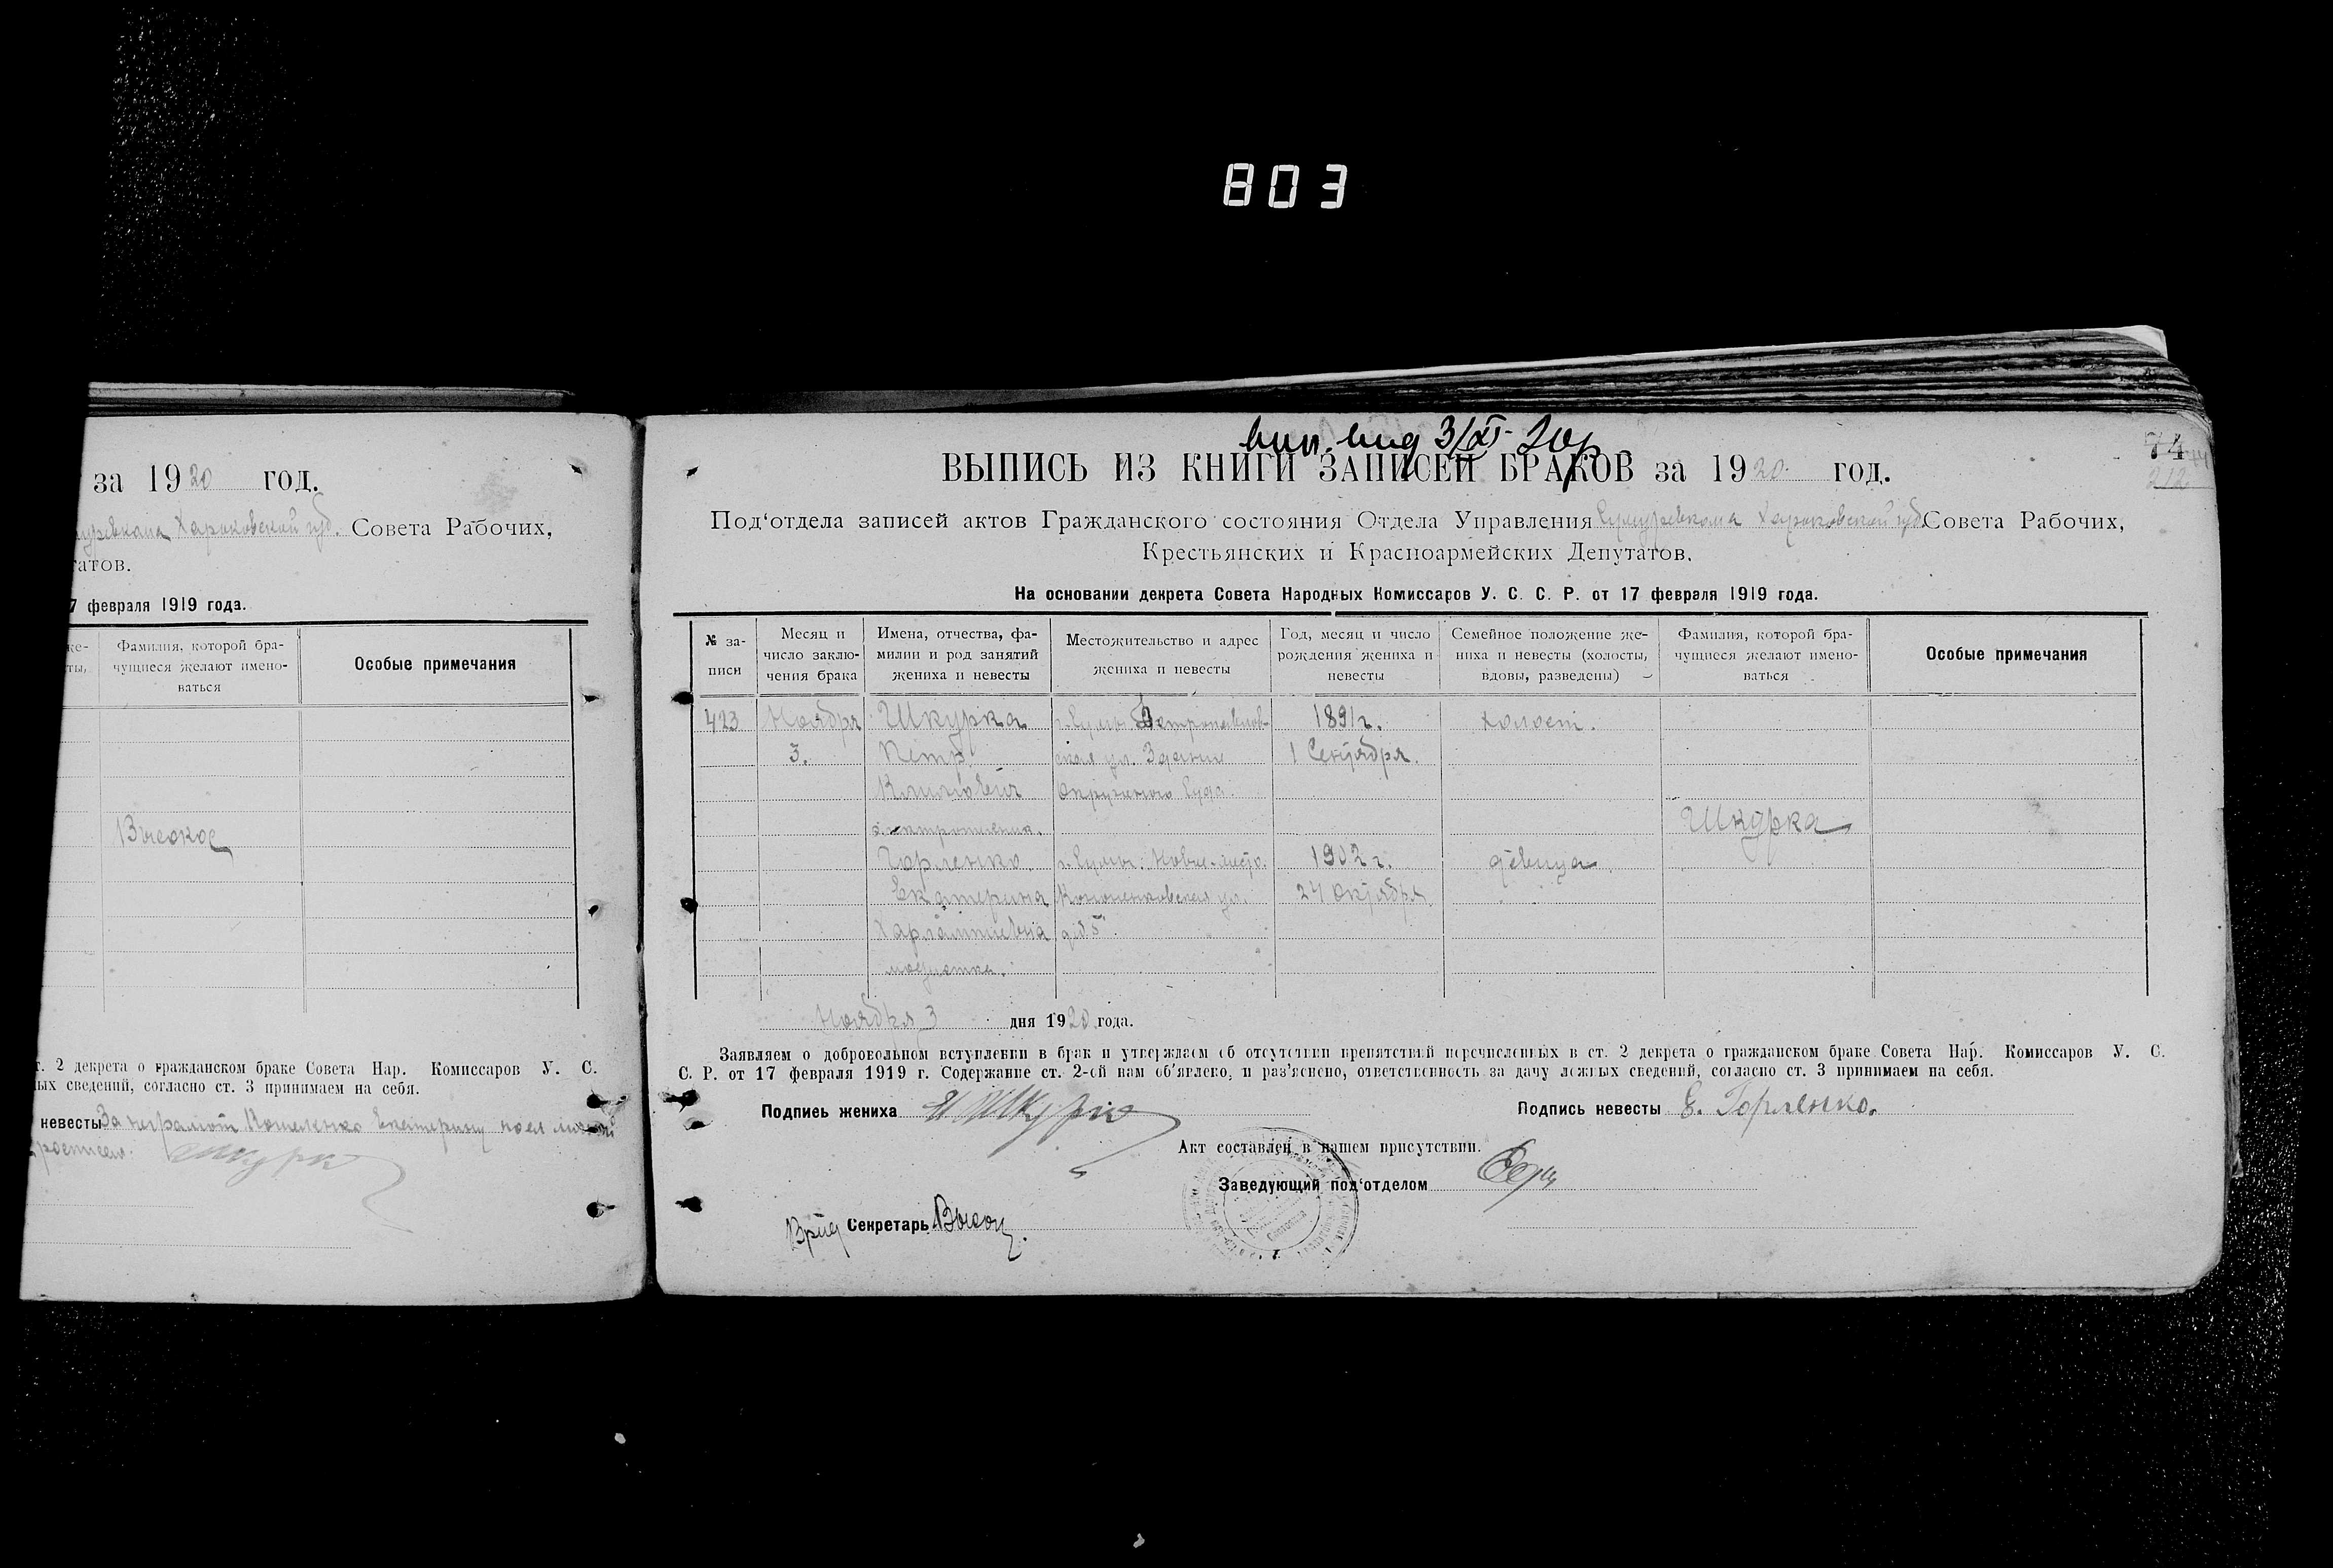 803
за 1920 год.
Харьковской губ. Совета Рабочих,
атов.
7 февраля 1919 года.
Фамилия, которой бра-
чущиеся желают имено-
ваться
Особые примечания
т. 2 декрета о гражданском браке Совета Нар. Комиссаров У. С.
ых сведений, согласно ст. 3 принимаем на себя.
невесты За неграмотн
74
ВЫПИСЬ ИЗ КНИГИ ЗАПИСЕЙ БРАКОВ за 1920 год.
Под‘отдела записей актов Гражданского состояния Отдела Управления Сумуревкома Харьковской губ. Совета Рабочих,
Крестьянских и Красноармейских Депутатов.
На основании декрета Совета Народных Комиссаров У. С. С. Р. от 17 февраля 1919 года.
№ за-
писи
Месяц и
число заклю-
чения брака
Имена, отчества, фа-
милии и род занятий
жениха и невесты
Местожительство и адрес
жениха и невесты
Год, месяц и число
рождения жениха и
невесты
Семейное положение же-
ниха и невесты (холосты,
вдовы, разведены)
Фамилия, которой бра-
чущиеся желают имено-
ваться
Особые примечания
423 Ноября Шкурка г. Сумы Петропавлов- 1891 г. холост.
3. Петр ская ул. Здание 1 Сентября.
Окружного Суда.
Шкурка
Горленко г. Сумы. Новое-место. 1902 г. девица
Екатерина Кононенковская ул. 24 Октября.
Харлампиевна д. № 5
модистка.
Ноября 3 дня 1920 года.
Заявляем о добровольном вступлении в брак и утверждаем об отсутствии препятствий перечисленных в ст. 2 декрета о гражданском браке Совета Нар. Комиссаров У. С.
С. Р. от 17 февраля 1919 г. Содержание ст. 2-ой нам об‘явлено, и раз‘яснено, ответственность за дачу ложных сведений, согласно ст. 3 принимаем на себя.
Подпись жениха
Подпись невесты Е. Горленко.
Акт составлен в нашем присутствии.
Заведующий под‘отделом
Врид Секретарь